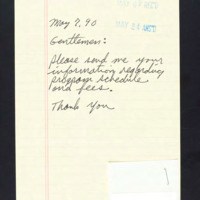 May 9, 90
Gentlemen:
Please send me your
information regarding
program schedule
and fees.
Thank You